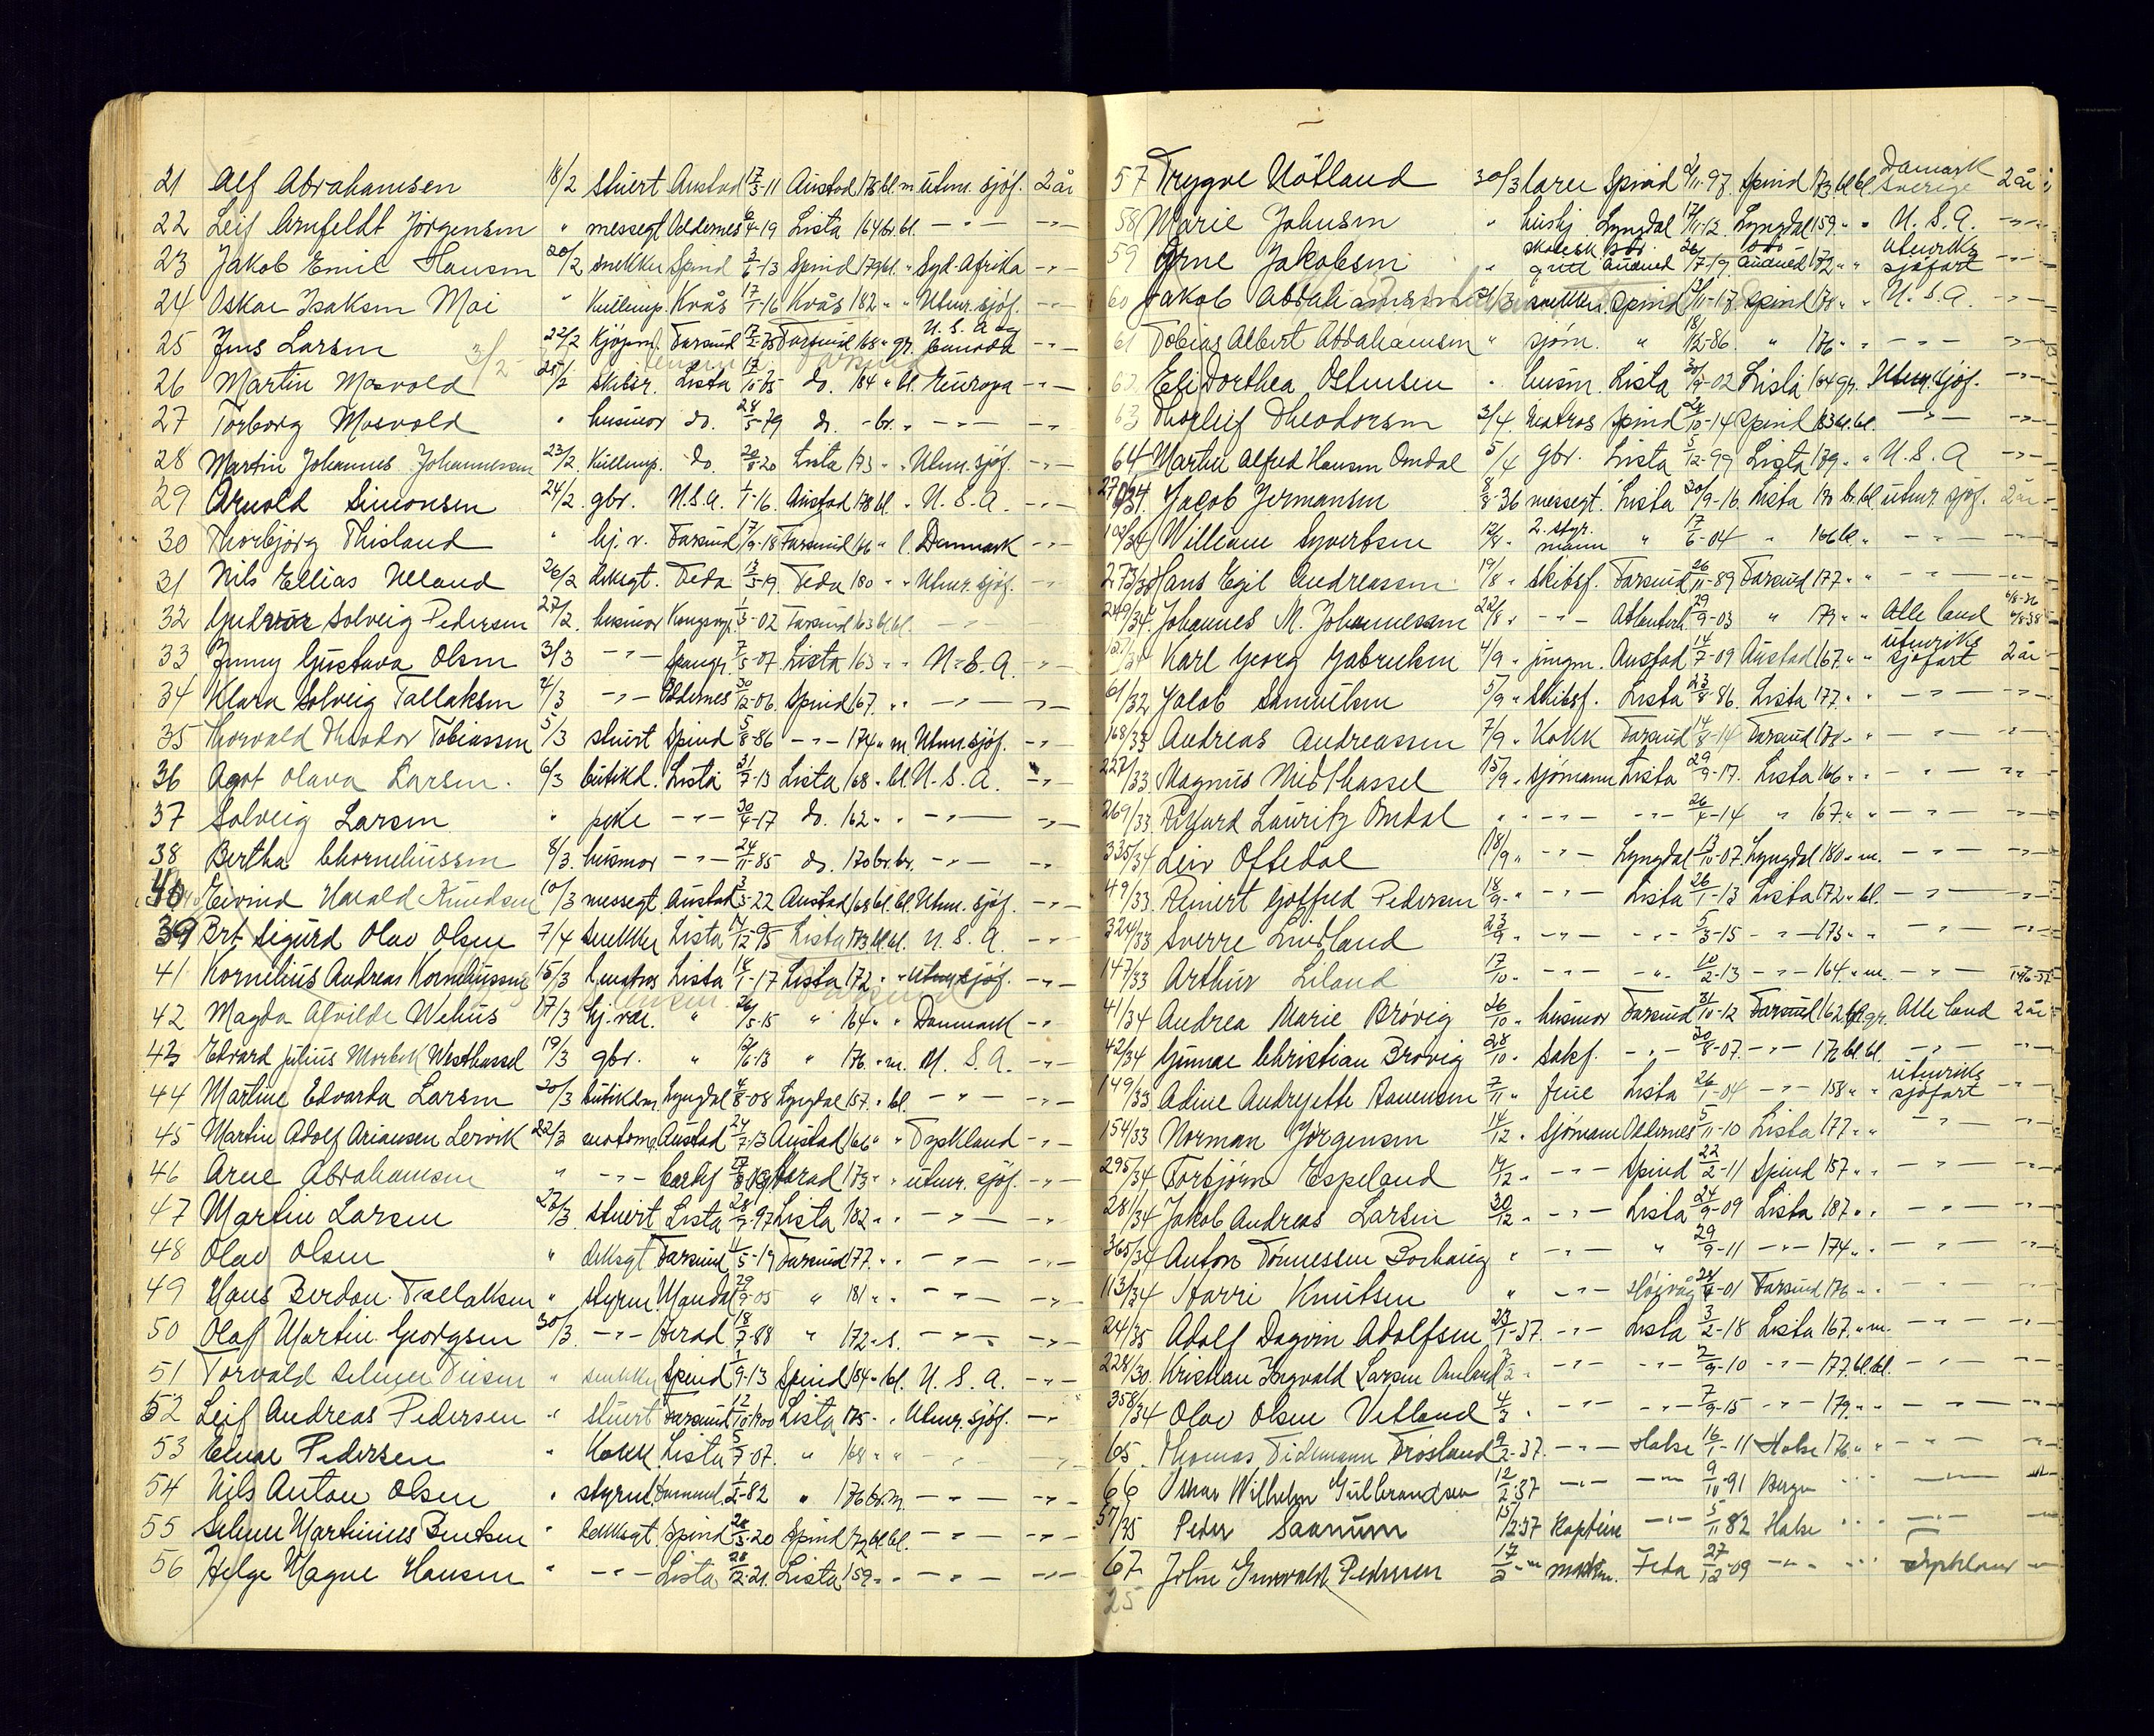 21 Alf Abrahamsen 18/2 stuert Austad 17/3-11 Austad 178 bl. m. utenr. sjöf. 2 år
22 Leif Arnfeldt Jörgensen " messegt. Oddernes 6/4-19 Lista 164 br. bl. -"- -"-
23 Jakob Emil Hansen 20/2 snekker Spind 3/6-13 Spind 179 bl. " Syd-Afrika -"-
24 Oskar Isaksen Moi " Kullemp. Kvås 17/1-16 Kvås 182 " " Utenr. sjöf. -"-
25 Jens Larsen 22/2 Kjöpm. Farsund 17/2-75 Farsund 168 " gr. U. S. A. og Canada -"-
26 Martin Mosvold 25/2 skibsr. Lista 17/11-75 do. 184 " bl. Europa -"-
27 Torborg Mosvold " husmor do. 28/5-79 do. - br. " -"- -"-
28 Martin Johannes Johannessen 23/2 Kullemp. do. 20/8-20 Lista 173 " " Utenr. sjöf. -"-
29 Arnold Simonsen 24/2. gbr. U.S.A. 1/1-16. Austad 178 bl. " U. S. A. -"-
30 Thorbjörg Thisland " hj. v. Farsund 17/9-18 Farsund 166 " l. Danmark -"-
31 Nils Ellias Ueland 26/2 deksgt. Feda 13/5-19. Feda 180 " " Utenr. sjöf. -"-
32 Gudrun Solveig Pedersen 27/2. husmor 1/3-02 Farsund 163 bl. bl. -"-
33 Jenny Gustava Olsen 3/3 -"- 7/5-07. Lista 163 " " U. S. A. -"-
34 Klara Solveig Tallaksen 4/3 -"- Oddernes 30/12-06. Spind 167. " " -"- -"-
35 Thorvald Theodor Tobiassen 5/3 stuert Spind 5/8-86 -"- 174 " m. Utenr. sjöf. -"-
36 Agot Olava Larsen. 6/3 butikd. Lista 31/7-13 Lista 168 " bl. U. S. A. -"-
37 Solveig Larsen " pike -"- 30/4-17 do. 162 " " -"- -"-
38 Bertha Chorneliussen 8/3. husmor -"- 24/11-85 do. 170 br. br. -"- -"-
40 Eivind Harald Knudsen 10/3 messegt. Austad 3/3-22 Austad 168 bl. bl. Utenr. sjöf. -"-
39 Brt Sigurd Olav Olsen 7/4 Snekker Lista Lista 173 bl. bl. U. S. A. -"-
41 Kornelius Andreas Korneliussen 15/3 Lista 18/1-17 Lista 172 " " Utenr. sjöf. -"-
42 Magda Alvilde Wehus 17/3 hj. vær. " 26/5-15 " 164 " " Danmark -"-
43 Edvard Julius Westhassel 19/3 gbr. " " 176. " m. U. S. A. -"-
44 Martine Edvarda Larsen 20/3 butikdm. Lyngdal 4/8-08 Lyngdal 157. " bl. -"- -"-
45 Martin Adolf Ariansen Lervik 22/3 Austad 24/7-13 Austad 166 " " Tyskland -"-
46 Arne Abrahamsen " -"- Herad 173 " " utenr. sjöf. -"-
47 Martin Larsen 22/3. stuert Lista 28/9-97 Lista 182 " " -"- -"-
48 Olav Olsen " dekksgt Farsund Farsund 177. " " -"- -"-
49 Hans Berdon Tallaksen " styrm. Mandal 29/9-05 " 181 " " -"- -"-
50 Olaf Martin Georgsen 30/3. -"- Herad 18/7-88 " 172 " s. -"- -"-
51 Torvald Selmer " snekker Spind 1/9-13 Spind 184 " bl. U. S. A. -"-
52 Leif Andreas Pedersen " stuert Farsund 12/10-1900 Lista 175 " " Utenr. sjöf. -"-
53 Einar Pedersen " Kokk Lista 5/7-07. " 168 " " -"- -"-
54 Nils Anton Olsen " styrm. 1/2-82 " 176 br. m. -"- -"-
55 Selmer Martinius Bentsen " dekksgt Spind 28/3-20 Spind 172 bl. bl. -"- -"-
56 Helge Magne Hansen " -"- Lista 28/12-21. Lista 159 " " -"- -"-
57 Trygve Nötland 30/3 lærer Spind 2/11-97. Spind 173 bl. bl. Danmark Sverige 2 år
58 Marie Johnsen " hushj. Lyngdal 17/11-12. Lyngdal 159 " " U. S. A. -"-
59 Arne Jakobsen " gutt Audned 26/7-19. Audned 172 " " utenriks sjöfart -"-
60 Jakob Abrahamsen 31/3 snekker. Spind Spind 178 " " U. S. A. -"-
61 Tobias Albert Abrahamsen " sjöm. " 18/12-86. " 176 " " -"- -"-
62 Eli Dorthea Ostensen " husm. Lista 30/9-02 Lista 164 gr. Utenr. sjöf. -"-
63 Thorleif Theodorsen 3/4 Matros Spind 24/10-14 Spind 183 bl. bl. -"- -"-
64 Martin Alfred Hansen Omdal 5/4 gbr. Lista 5/12-99 Lista 179 " " U. S. A -"-
Jacob Jermansen 8/8-36 messegt. Lista 30/9-16. Lista 178 br. bl. utenr. sjöf. 2 år
William Syvertsen 12/8 " 2. styrmann " 17/6-04 " 166 bl. " -"- -"-
273/34 Hans Egil Andreassen 19/8 " skibsf. Farsund 26/11-89 Farsund 177 " " -"- -"-
249/34 Johannes M. Johannessen 22/8 " -"- 29/9-03 " 179 " " Alle land 6/8-36 6/8-38
Karl Georg Gabrielsen 4/9 " jungm. Austad 14/7-09 Austad 167. " " utenriks sjöfart 2 år
61/32 Jacob Samuelsen 5/9 " Skibsf. Lista 23/8-86. Lista 177 " " -"- -"-
168/33 Andreas Andreassen 7/9 " Kokk Farsund 14/8-14 Farsund 178 " " -"- -"-
227/33. Magnus Midthassel 15/9 " sjömann Lista 29/9-17. Lista 166 " " -"- -"-
269/33. Rikard Lauritz Omdal " " -"- -"- 26/4-14 " 167 " " -"- -"-
335/34 Leiv Oftedal 18/9 " -"- Lyngdal Lyngdal 180 " m. -"- -"-
49/33. Reinert Gotfred Pedersen 18/9 " -"- Lista 26/1-13 Lista 172 " bl. -"- -"-
324/33 Sverre Lindland 23/9 " -"- -"- 5/3-15 -"- 173 " " -"- -"-
147/33 Arthur Liland 17/10 " -"- -"- 10/2-13 -"- 164. " m. -"-
41/34 Andrea Marie Brövig 26/10 " husmor Farsund 31/10-12 Farsund 162 bl. gr. Alle land 2 år
42/34 Gunnar Christian Brovig 28/10 " Saksf. -"- 20/8-07. -"- 172 bl. bl. -"- -"-
149/33 Adine Andrejette 7/11 " frue Lista 26/1-04 -"- 158 " " utenriks sjöfart -"-
154/33 Norman Jörgensen 14/12 " sjömann Oddernes 5/11-10 Lista 177 " " -"- -"-
295/34 Torbjörn Espeland 14/12 " -"- Spind 22/2-11 Spind 157 " " -"- -"-
281/34 Jakob Andreas Larsen 30/12 " -"- Lista 24/9-09 Lista 187 " " -"- -"-
365/34 Anton Tönnessen Borhaug " -"- " 29/9-11 -"- 174 " " -"- -"-
113/34 Harri Knutsen " -"- Höivåg Farsund 176 " " -"- -"-
24/35 Adolf Dagvin Adolfsen -"- Lista 3/2-18 Lista 167. " m. -"- -"-
228/30. Kristian Ingvald Larsen -"- -"- 2/9-10 -"- 177 bl. bl. -"- -"-
358/34 Olav Olsen Vetland 4/3 " -"- -"- 7/9-15 -"- 179 " " -"- -"-
65. Thomas Tidemann Tröstand 9/2-37. -"- Halse 16/1-11 Halse 176 " " -"- -"-
66 Oskar Wilhelm Gulbrandsen 12/2-37 -"- -"- 9/10-91 Bergen " " " -"- -"-
57/35 Peder Saanum 15/2-37 Kaptein -"- 5/11 82 Halse " " " -"- -"-
67 John Pedersen 17/2 -"- Feda 27/12-09 -"- " " " Tyskland -"-
25